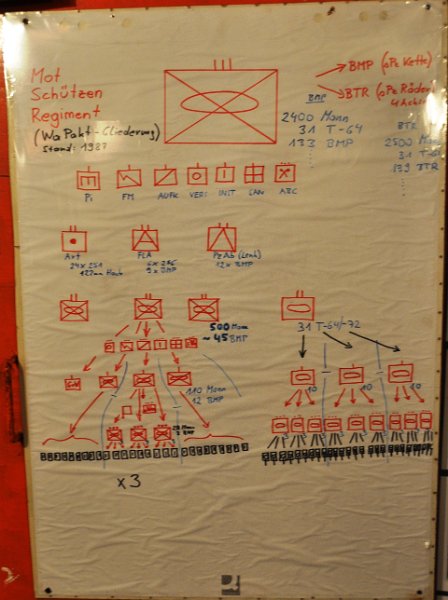 Mot
Schützen
Regiment
(WaPakt-Gliederung)
Stand: 1987
BMP (SPz Kette)
BTR (SPz Räder)
BMP
2400 Mann
31 T-64
133 BMP
BTR
2500 Mann
31 T-64
139 BTR
Pi
FM
AUFK.
VERS
INST
SAN
ABC
Art
122mm Haub
FLA
9x BMP
PzAb (Lenk)
12x BMP
500 Mann
~ 45 BMP
31 T-64/-72
110 Mann
12 BMP
10
10
10
x 3